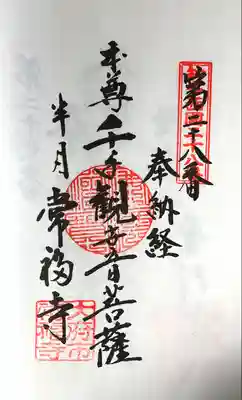 第二十八番
奉納経
本尊千手観世音菩薩
半月 常福寺